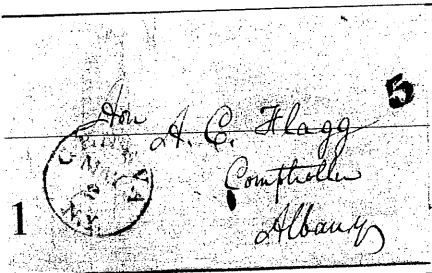 5
Hon
A. C. Flagg
Comptroller
Albany
N.Y.
1